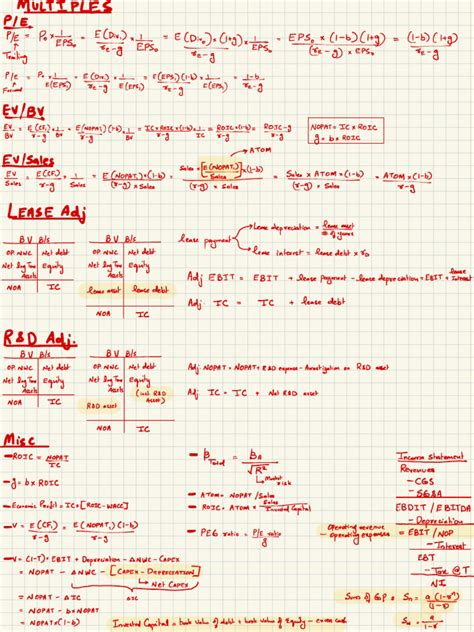 MULTIPLES
P/E
P/E = P₀ × 1/EPS₀ = E(Div₁)/(rₑ-g) × 1/EPS₀ = E(Div₀) × (1+g)/(rₑ-g) × 1/EPS₀ = EPS₀ × (1-b)(1+g)/((rₑ-g) × EPS₀) = (1-b)(1+g)/(rₑ-g)
Trailing
P/E = P₀ × 1/E(EPS₁) = E(Div₁)/(rₑ-g) × 1/E(EPS₁) = E(EPS₁)(1-b)/(rₑ-g) × 1/E(EPS₁) = (1-b)/(rₑ-g)
Forward
EV/BV
EV/BV = E(CF₁)/(r-g) × 1/BV = E(NOPAT₁)(1-b)/(r-g) × 1/BV = IC×ROIC×(1-b)/(r-g) × 1/IC = ROIC×(1-b)/(r-g) = (ROIC-g)/(r-g)
NOPAT = IC × ROIC
g = b × ROIC
EV/Sales
→ ATOM
EV/Sales = E(CF₁)/(r-g) × 1/Sales = E(NOPAT₁)×(1-b)/((r-g) × Sales) = Sales × E(NOPAT₁)/Sales × (1-b)/((r-g) × Sales) = Sales × ATOM × (1-b)/((r-g) × Sales) = ATOM × (1-b)/(r-g)
LEASE Adj
BV B/s
OP. NWC Net debt
Net Lng Trm Assets Equity
NOA IC
BV B/s
OP. NWC Net debt
Net Lng Trm Assets Equity
lease asset lease debt
NOA IC
lease payment
→ lease depreciation = lease asset / # of years
→ lease interest = lease debt × r_D
Adj EBIT = EBIT + lease payment - lease depreciation = EBIT + lease Interest
Adj IC = IC + lease debt
R&D Adj.
BV B/s
OP NWC Net debt
Net Lng Trm Assets Equity
NOA IC
BV B/s
OP NWC Net debt
Net Lng Trm Assets Equity
(incl. R&D Asset)
R&D asset
NOA IC
Adj. NOPAT = NOPAT + R&D expense - Amortization on R&D asset
Adj IC = IC + Net R&D asset
Misc
- ROIC = NOPAT/IC
- g = b × ROIC
- Economic Profit = IC × [ROIC - WACC]
- V = E(CF₁)/(r-g) = E(NOPAT₁)(1-b)/(r-g)
- V = (1-T) × EBIT + Depreciation - ΔNWC - CAPEX
= NOPAT - ΔNWC - [CAPEX - DEPRECIATION]
→ Net CAPEX
= NOPAT - ΔIC
ΔIC
= NOPAT - b×NOPAT
= NOPAT × (1-b)
- β Total = β_A/√R²
→ Market risk
- ATOM = NOPAT/Sales
- PEG ratio = P/E ratio/g
Operating revenue
- Operating expenses
Invested Capital = book value of debt + book value of Equity - excess cash
Income statement
Revenues
- CGS
- SG&A
EBDIT / EBITDA
- Depreciation
= EBIT / NOP
- Interest
EBT
- Tax @ T
NI
Sum of GP = Sₙ = a(1-rⁿ)/(1-r)
S∞ = a/(1-r)